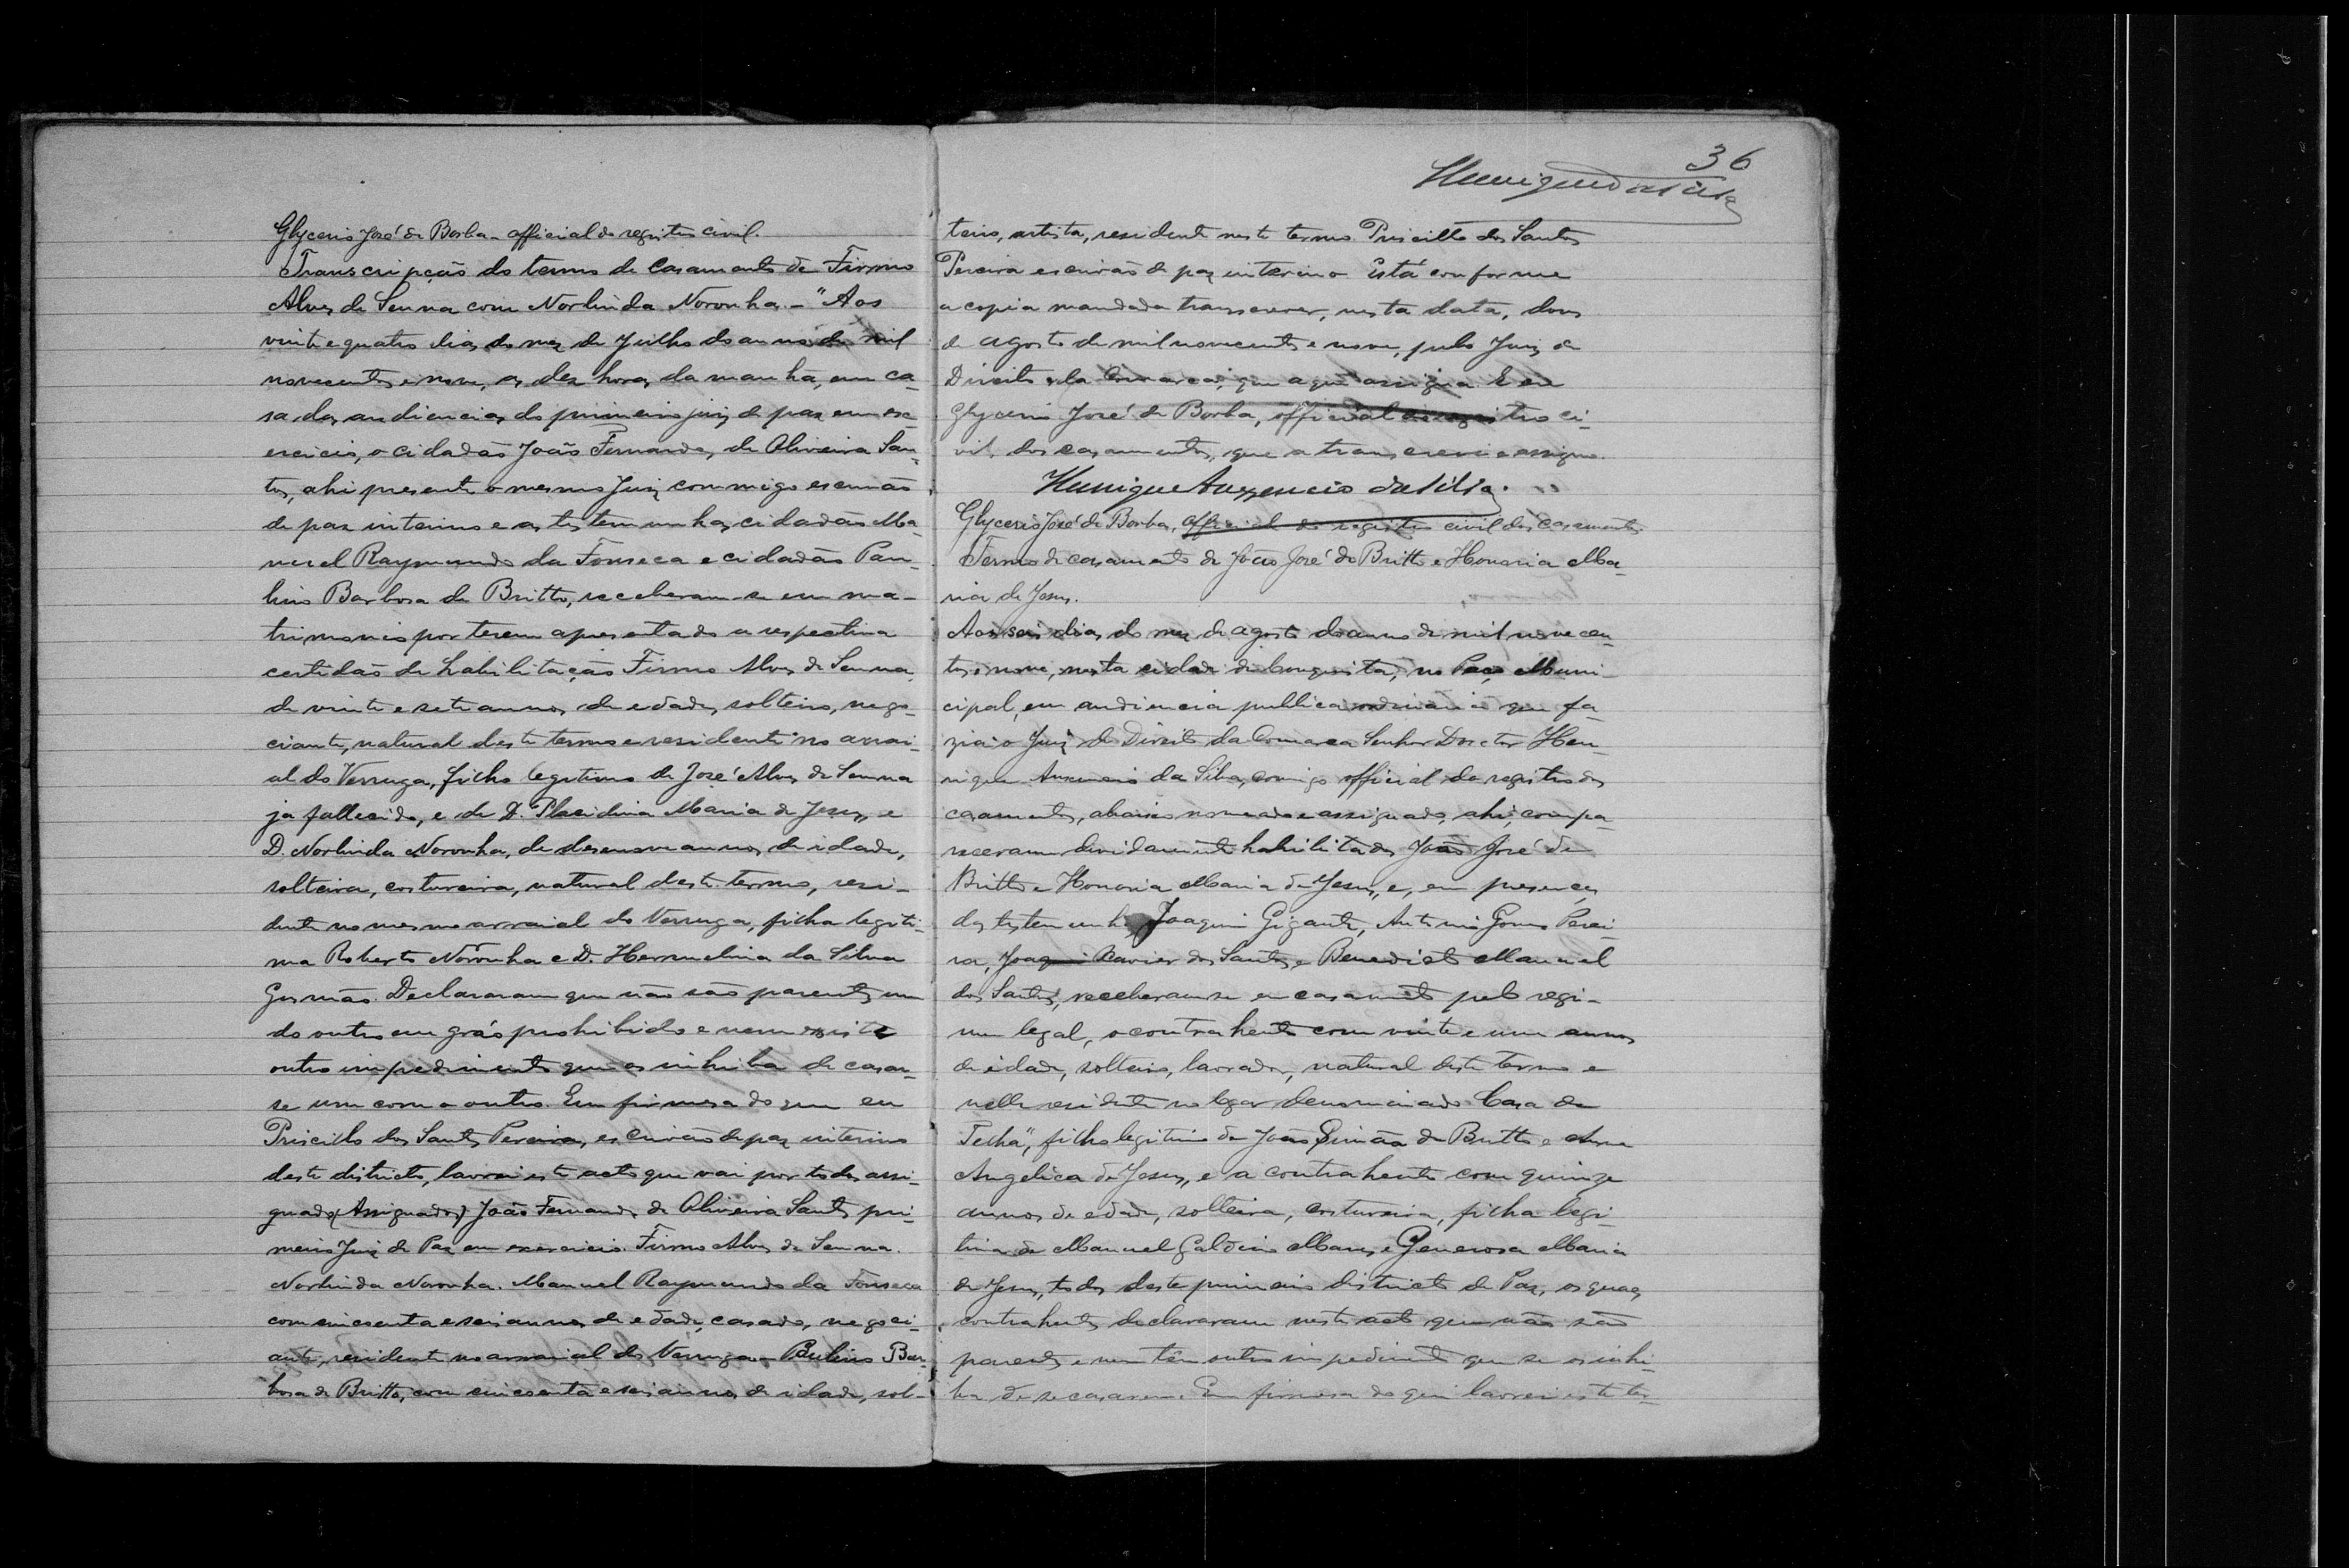 Glycerio José de Borba - official do registro civil.
Transcripção do termo de casamento de Firmo
Alves de Senna com Norlinda Noronha. - "Aos
vinte e quatro dias do mez de Julho do anno de mil
novecentos e nove, as dez horas da manhã, em ca-
sa das audiencias do primeiro juiz de paz em ex-
ercicio, o cidadão João Fernandes de Oliveira San-
tos, ahi presente o mesmo Juiz commigo escrivão
de paz interino e as testemunhas cidadão Ma-
nuel Raymundo da Fonseca e cidadão Pau-
lino Barbosa de Britto, receberam-se em ma-
trimonio por terem apresentado a respectiva
certidão de habilitação Firmo Alves de Senna,
de vinte e sete annos de edade, solteiro, nego-
ciante, natural deste termo e residente no arrai-
al do Verruga, filho legitimo de José Alves de Senna
ja fallecido, e de D. Placidina Maria de Jesus, e
D. Norlinda Noronha, de desenove annos de idade,
solteira, costureira, natural deste termo, resi-
dente no mesmo arraial do Verruga, filha legiti-
ma Roberto Noronha e D. Hermelina da Silva
Gusmão. Declararam que não são parentes um
do outro em gráo prohibido e nem existe
outro impedimento que os inhiba de casar-
se um com o outro. Em firmesa do que eu
Priscillo dos Santos Pereira, escrivão de paz interino
deste districto, lavrei este acto que vai por todos assi-
gnado (Assignados) João Fernandes de Oliveira Santos pri-
meiro Juiz de Paz em exercicio. Firmo Alves de Senna.
Norlinda Noronha. Manuel Raymundo da Fonseca
com cincoenta e seis annos de edade, casado, negoci-
ante, residente no arraial do Verruga - Paulino Bar-
bosa de Britto, com cincoenta e seis annos de idade, sol-
36
Henrique da Silva
teiro, artista, residente neste termo. Priscillo dos Santos
Pereira escrivão de paz interino Está conforme
a copia mandada transcrever, nesta data, dous
de agosto de mil novecentos e nove, pelo Juiz de
Direito da Comarca, que aqui assigna E eu
Glycerio José de Borba, official do registro ci-
vil, dos casamentos, que a transcrevi e assigno.
Henrique Auxencio da Silva.
Glycerio José de Borba, official do registro civil dos casamentos
Termo de casamento de João José de Britto e Honoria Ma-
ria de Jesus.
Aos seis dias do mez de agosto do anno de mil novecen-
tos e nove, nesta cidade da Conquista, no Paço Muni-
cipal, em audiencia publica ordinaria que fa-
zia o Juiz de Direito da Comarca Senhor Doctor Hen-
rique Auxencio da Silva, comigo official do registro dos
casamentos, abaixo nomeado e assignado, ahi, compa-
receram devidamente habilitados João José de
Britto e Honoria Maria de Jesus, e, em presença
das testemunhas Joaquim Gigante, Antonio Gomes Perei-
ra, Joaquim Xavier dos Santos e Benedicto Manuel
dos Santos, receberam-se em casamento pelo regi-
men legal, o contrahente com vinte e um annos
de idade, solteiro, lavrador, natural deste termo e
nelle residente no logar denominado Casa de
Telha", filho legitimo de João Simão de Britto e Anna
Angelica de Jesus, e a contrahente com quinze
annos de edade, solteira, costureira, filha legi-
tima de Manuel Galdino Mares e Generosa Maria
de Jesus, todos deste primeiro districto de Paz, os quaes
contrahentes declararam neste acto que não são
parentes e nem têm outro impedimento que se os inhi-
ba de se casarem. Em firmesa do que lavrei este ter-